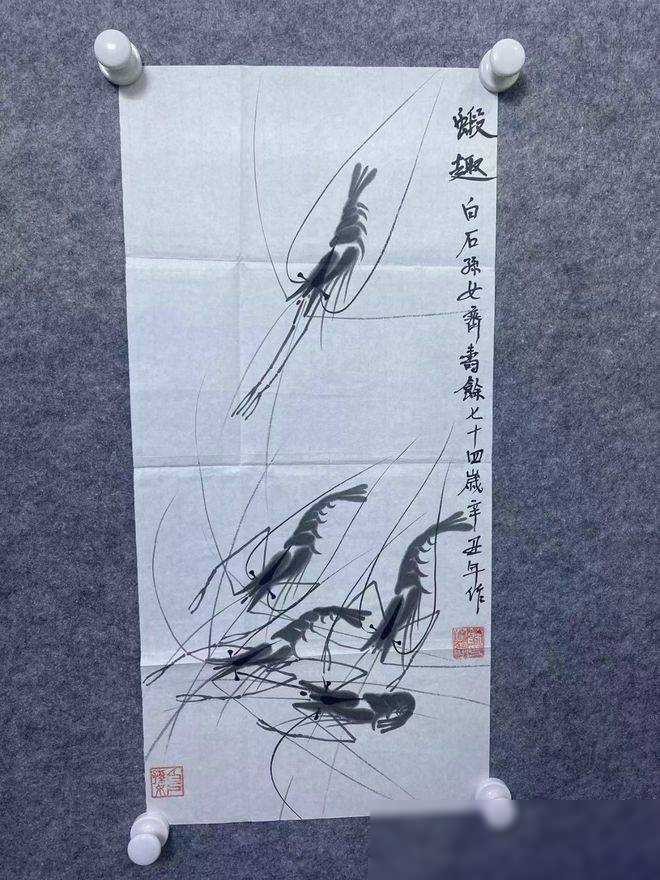 蝦趣 白石孫女齊壽餘七十四歲辛丑年作